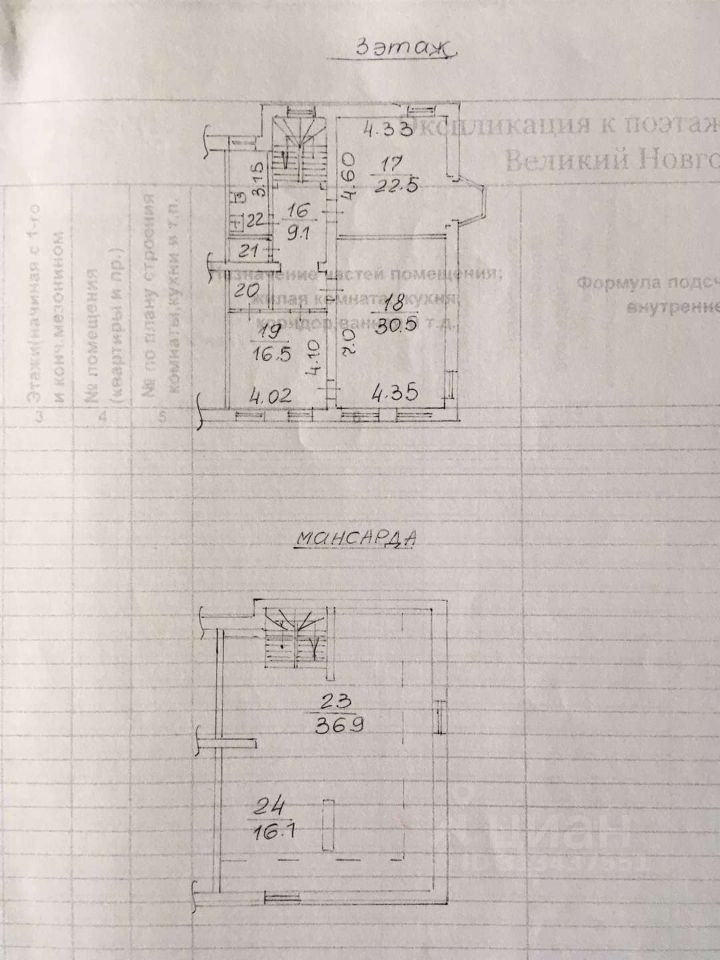 3 этаж
Экспликация к поэтаж
Великий Новго
4.33
17
22.5
4.60
3.15
16
9.1
22
21
20
Назначение частей помещения:
жилая комната, кухня,
коридор, ванная и т.д.
18
30.5
19
16.5
4.10
4.02
4.35
Формула подсч
внутренне
Этажи(начиная с 1-го
и конч.мезонином
№ помещения
(квартиры и пр.)
№ по плану строения
комнаты, кухни и т.п.
3
4
5
6
МАНСАРДА
23
36.9
24
16.1
циан